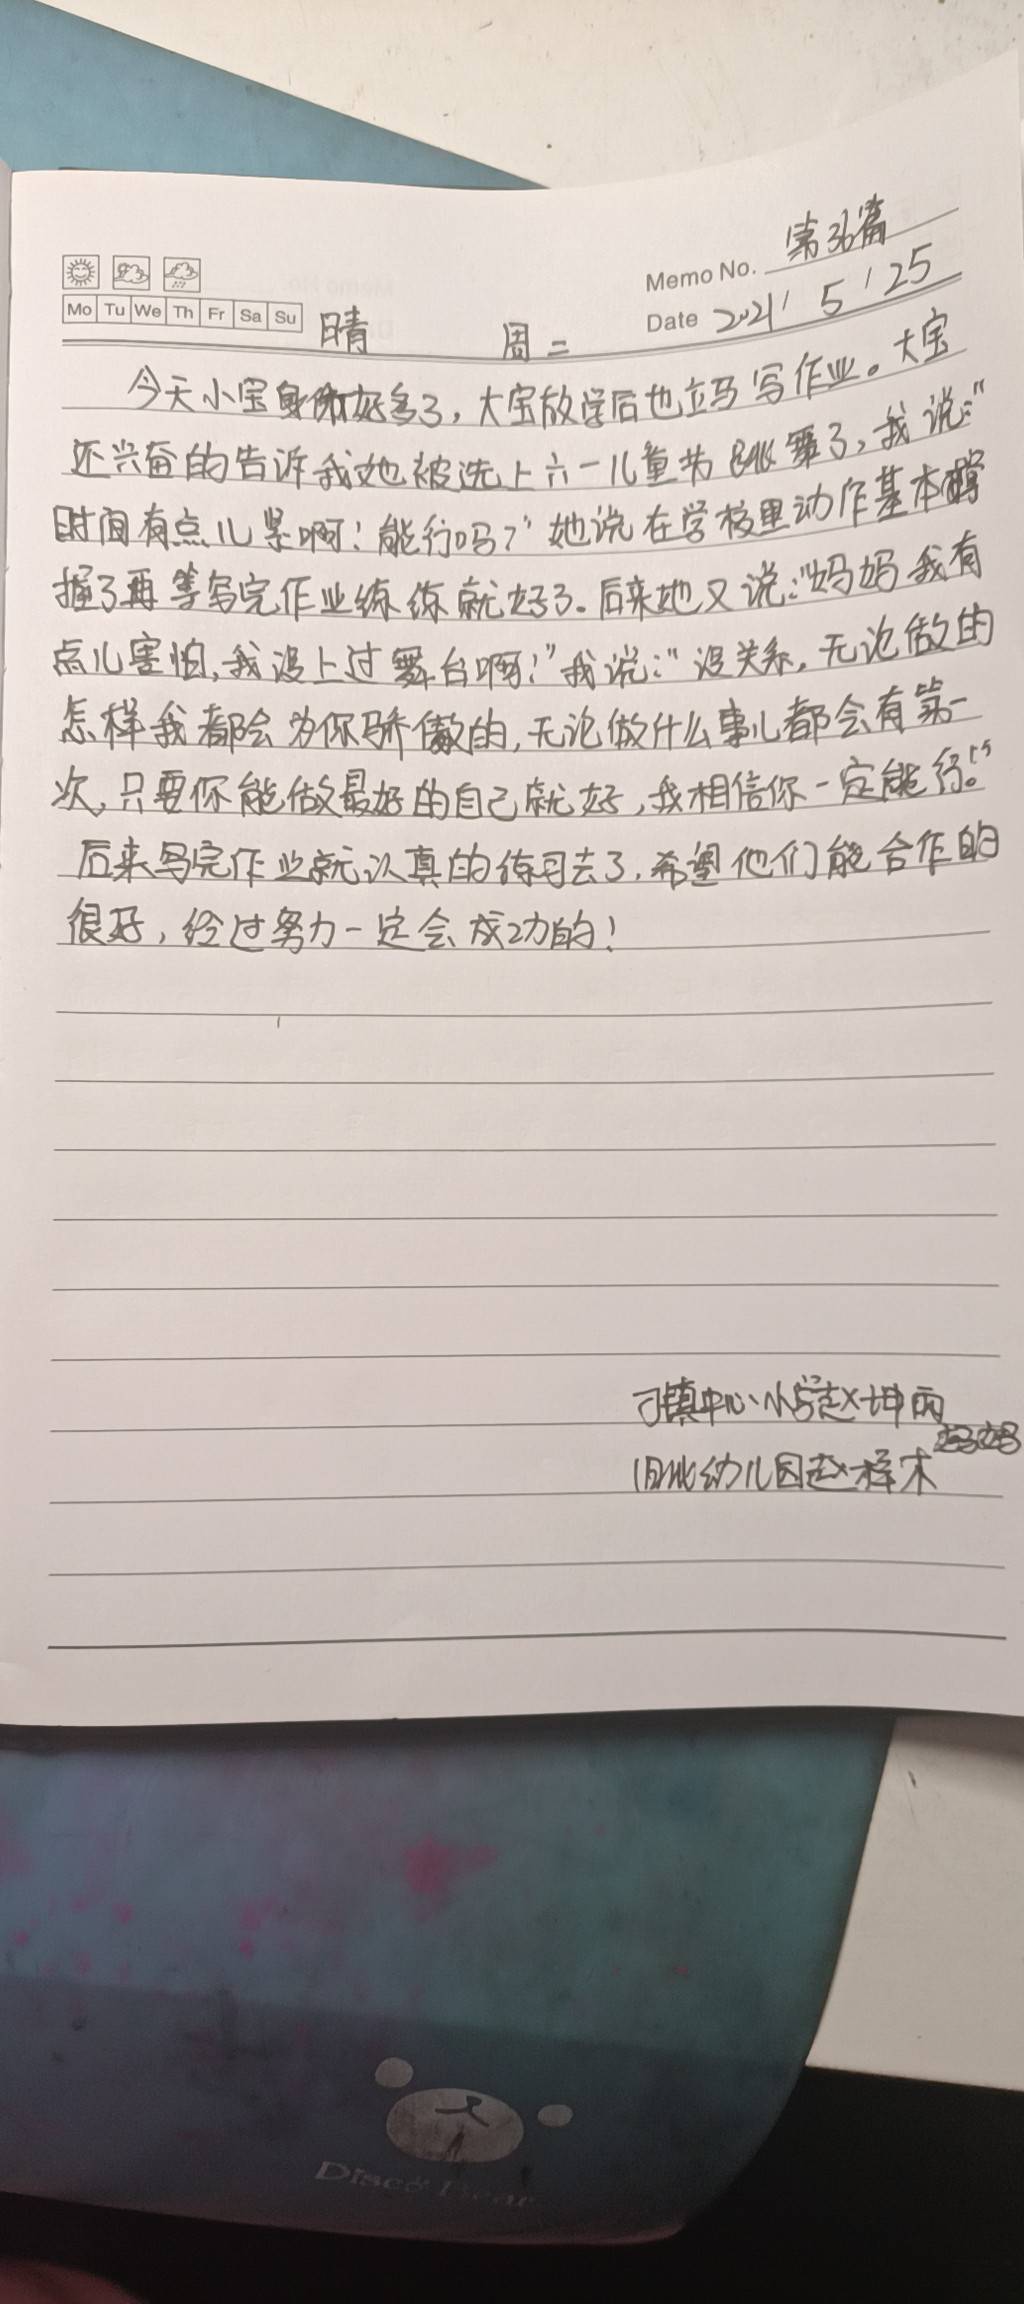 第36篇
Memo No.
Mo Tu We Th Fr Sa Su
Date 2021/5/25
晴 周二
今天小宝身体好多了，大宝放学后也立马写作业。大宝
还兴奋的告诉我她被选上六一儿童节跳舞了，我说："
时间有点儿紧啊！能行吗？"她说在学校里动作基本掌
握了再等写完作业练练就好了。后来她又说："妈妈我有
点儿害怕，我没上过舞台啊！"我说："没关系，无论做的
怎样我都会为你骄傲的，无论做什么事儿都会有第一
次，只要你能做最好的自己就好，我相信你一定能行。"
后来写完作业就认真的练习去了，希望他们能合作的
很好，经过努力一定会成功的！
刁镇中心小学赵坤雨
妈妈
旧北幼儿园赵择木
Disco Bear